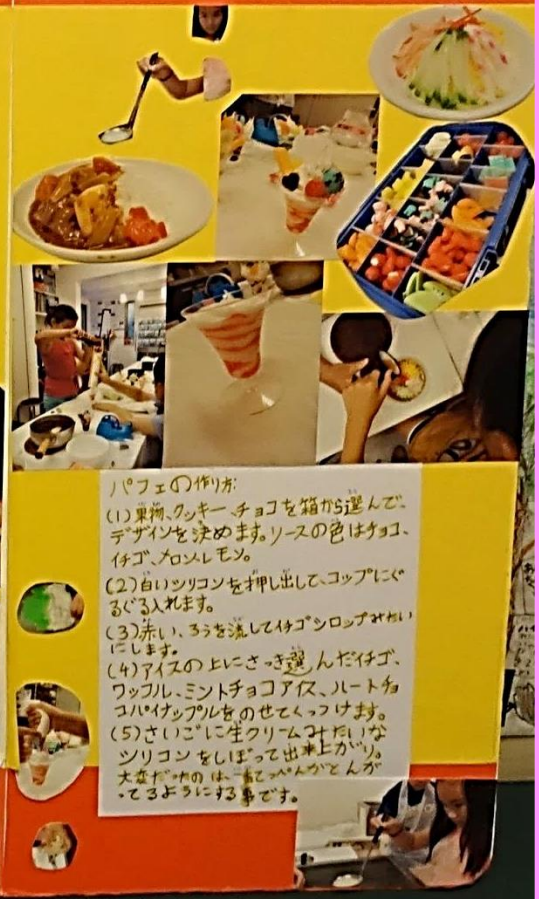 パフェの作り方
(1)果物、クッキー、チョコを箱から選んで、
デザインを決めます。ソースの色はチョコ、
イチゴ、メロン、レモン。
(2)白いシリコンを押し出して、コップにぐ
るぐる入れます。
(3)赤い、ろうを流してイチゴシロップみたい
にします。
(4)アイスの上にさっき選んだイチゴ、
ワッフル、ミントチョコアイス、ハートチョ
コパイナップルをのせてくっつけます。
(5)さいごに生クリームみたいな
シリコンをしぼって出来上がり。
大変だったのは、一番てっぺんがとんが
ってるようにする事です。